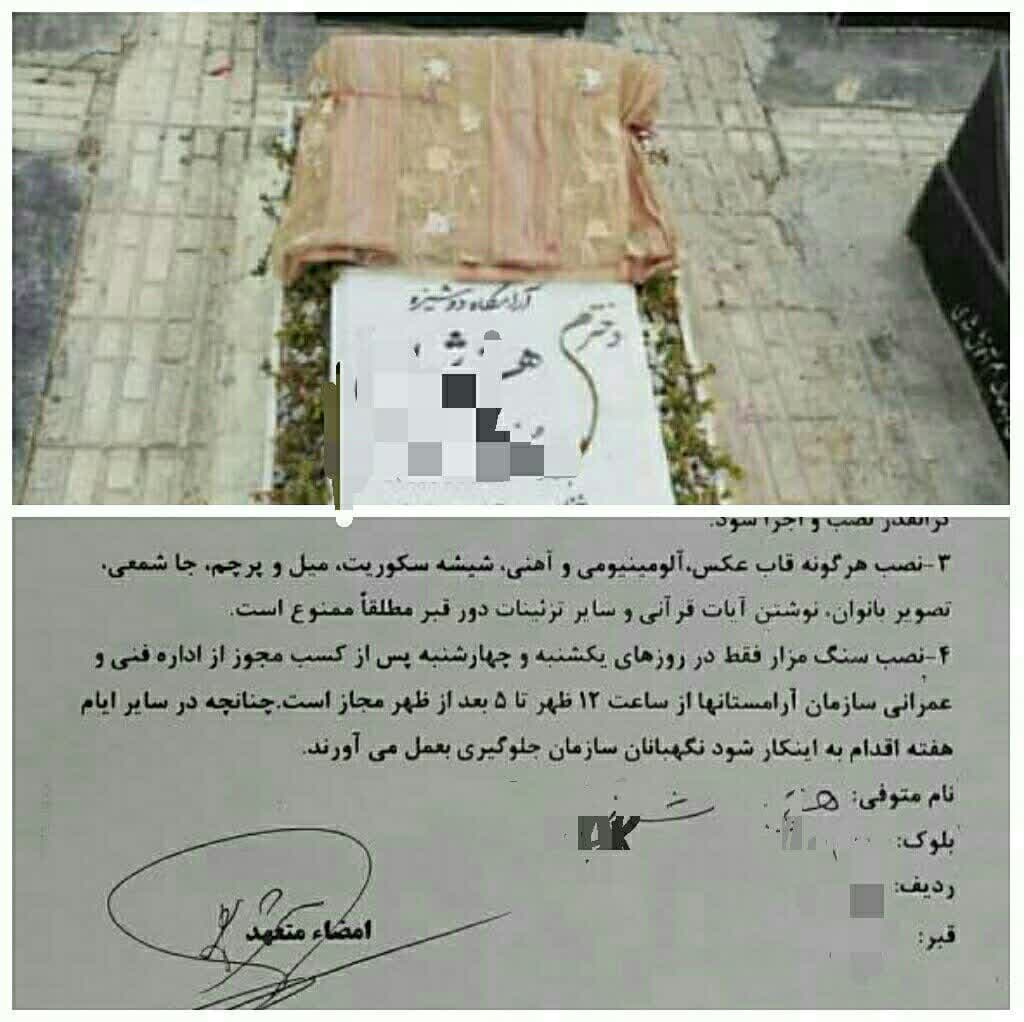 آرامگاه دوشیزه
دخترم
گرانقدر نصب و اجرا شود.
۳-نصب هرگونه قاب عکس،آلومینیومی و آهنی، شیشه سکوریت، میل و پرچم، جا شمعی،
تصویر بانوان، نوشتن آیات قرآنی و سایر تزئینات دور قبر مطلقاً ممنوع است.
۴-نصب سنگ مزار فقط در روزهای یکشنبه و چهارشنبه پس از کسب مجوز از اداره فنی و
عمرانی سازمان آرامستانها از ساعت ۱۲ ظهر تا ۵ بعد از ظهر مجاز است.چنانچه در سایر ایام
هفته اقدام به اینکار شود نگهبانان سازمان جلوگیری بعمل می آورند.
نام متوفی:
بلوک:
ردیف:
قبر:
امضاء متعهد